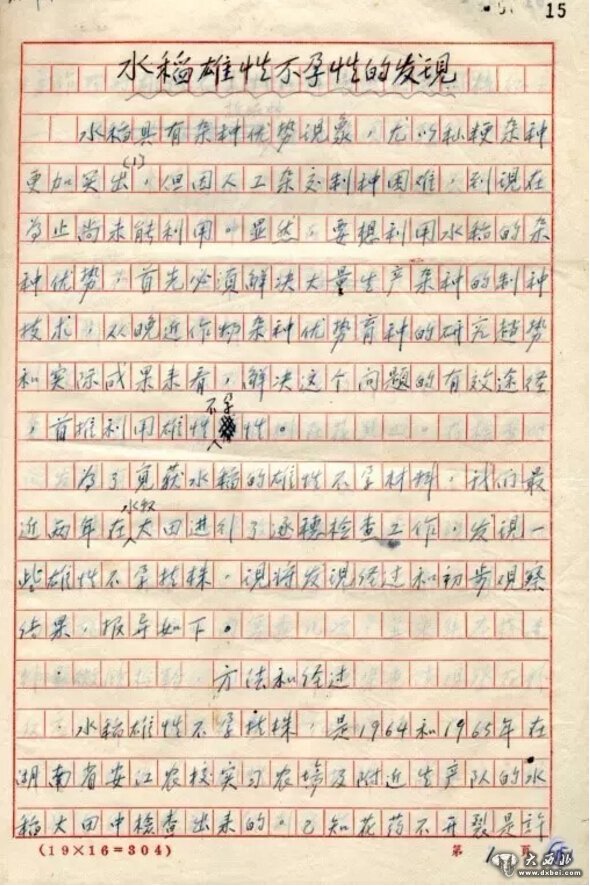 15
水稻雄性不孕性的发现
水稻具有杂种优势现象，尤以籼粳杂种
更加突出(1)，但因人工杂交制种困难，到现在
为止尚未能利用。显然，要想利用水稻的杂
种优势，首先必须解决大量生产杂种的制种
技术，从晚近作物杂种优势育种的研究趋势
和实际成果来看，解决这个问题的有效途径
，首推利用雄性不孕性。
为了觅获水稻的雄性不孕材料，我们最
近两年在水稻大田进行了逐穗检查工作，发现一
些雄性不孕植株，现将发现经过和初步观察
结果，报导如下。
方法和经过
水稻雄性不孕植株，是1964和1965年在
湖南省安江农校实习农场及附近生产队的水
稻大田中检查出来的。已知花药不开裂是许
(19×16=304)
第 1 页
大西北
www.dxbei.com